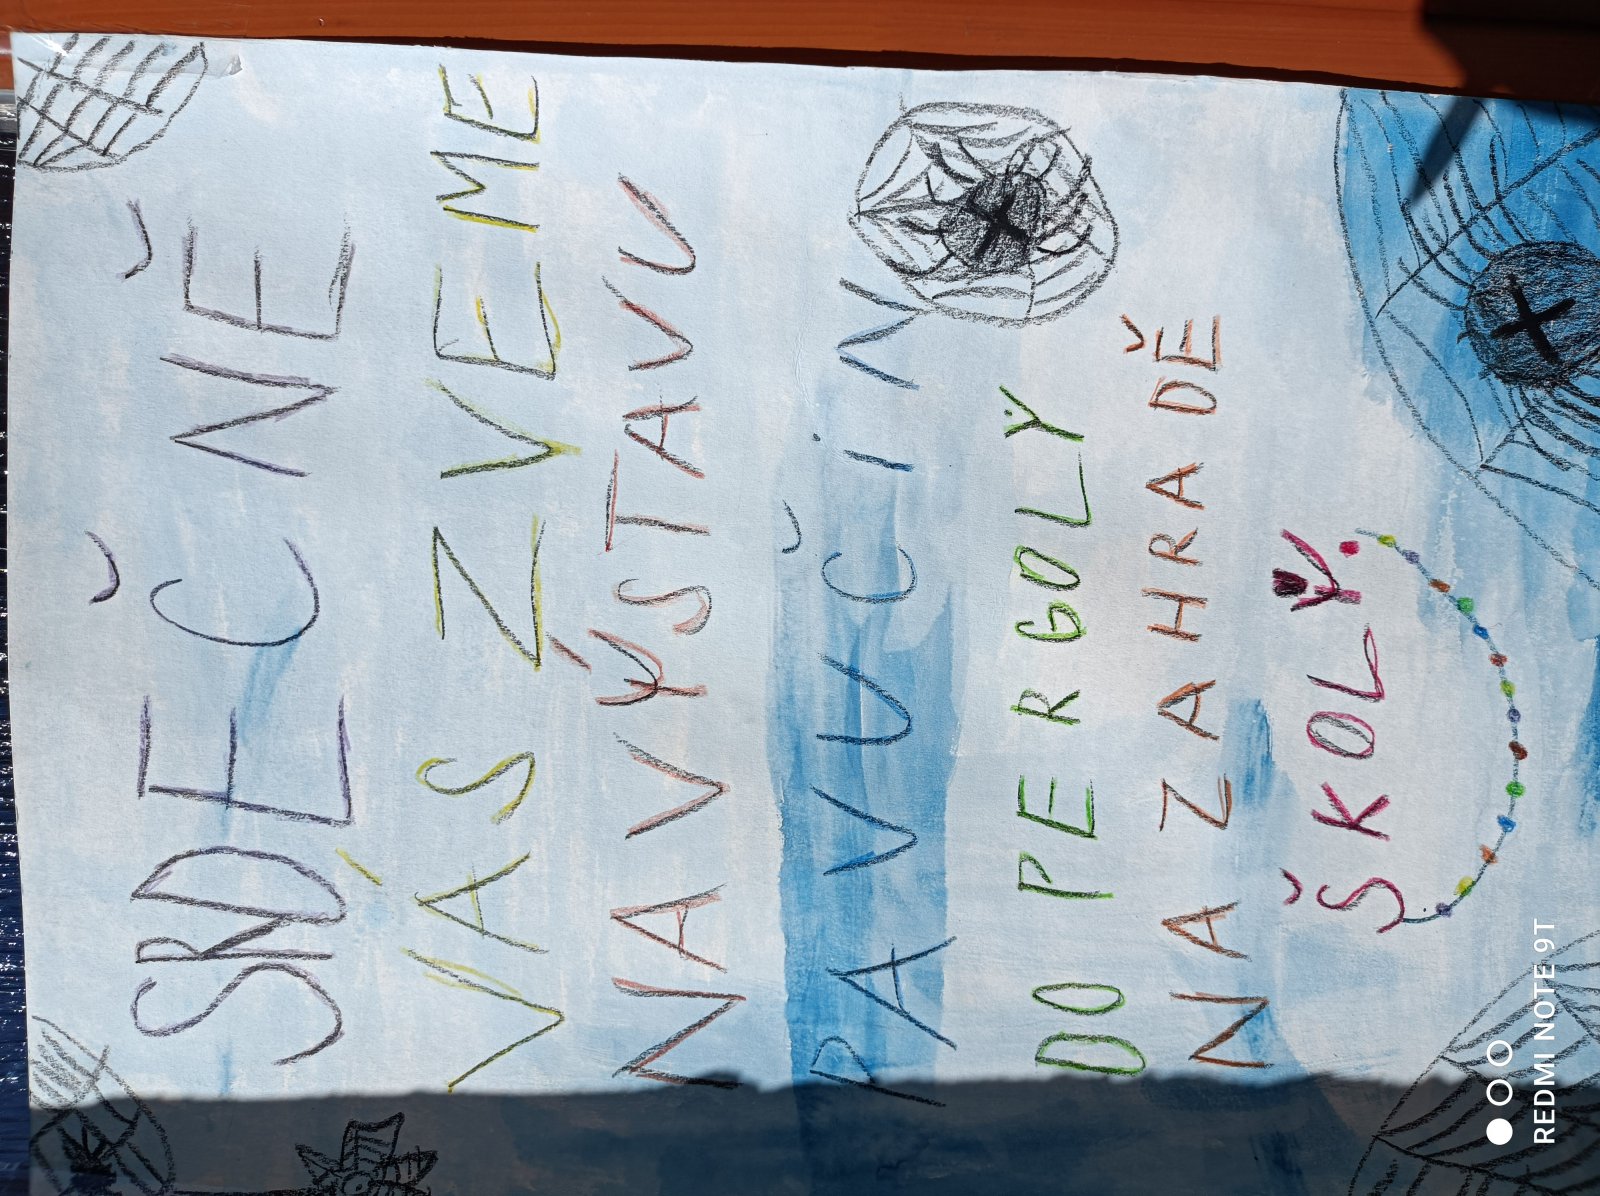 SRDEČNĚ
VÁS ZVEME
NA VÝSTAVU
PAVUČIN
DO PERGOLY
NA ZAHRADĚ
ŠKOLY.
REDMI NOTE 9T